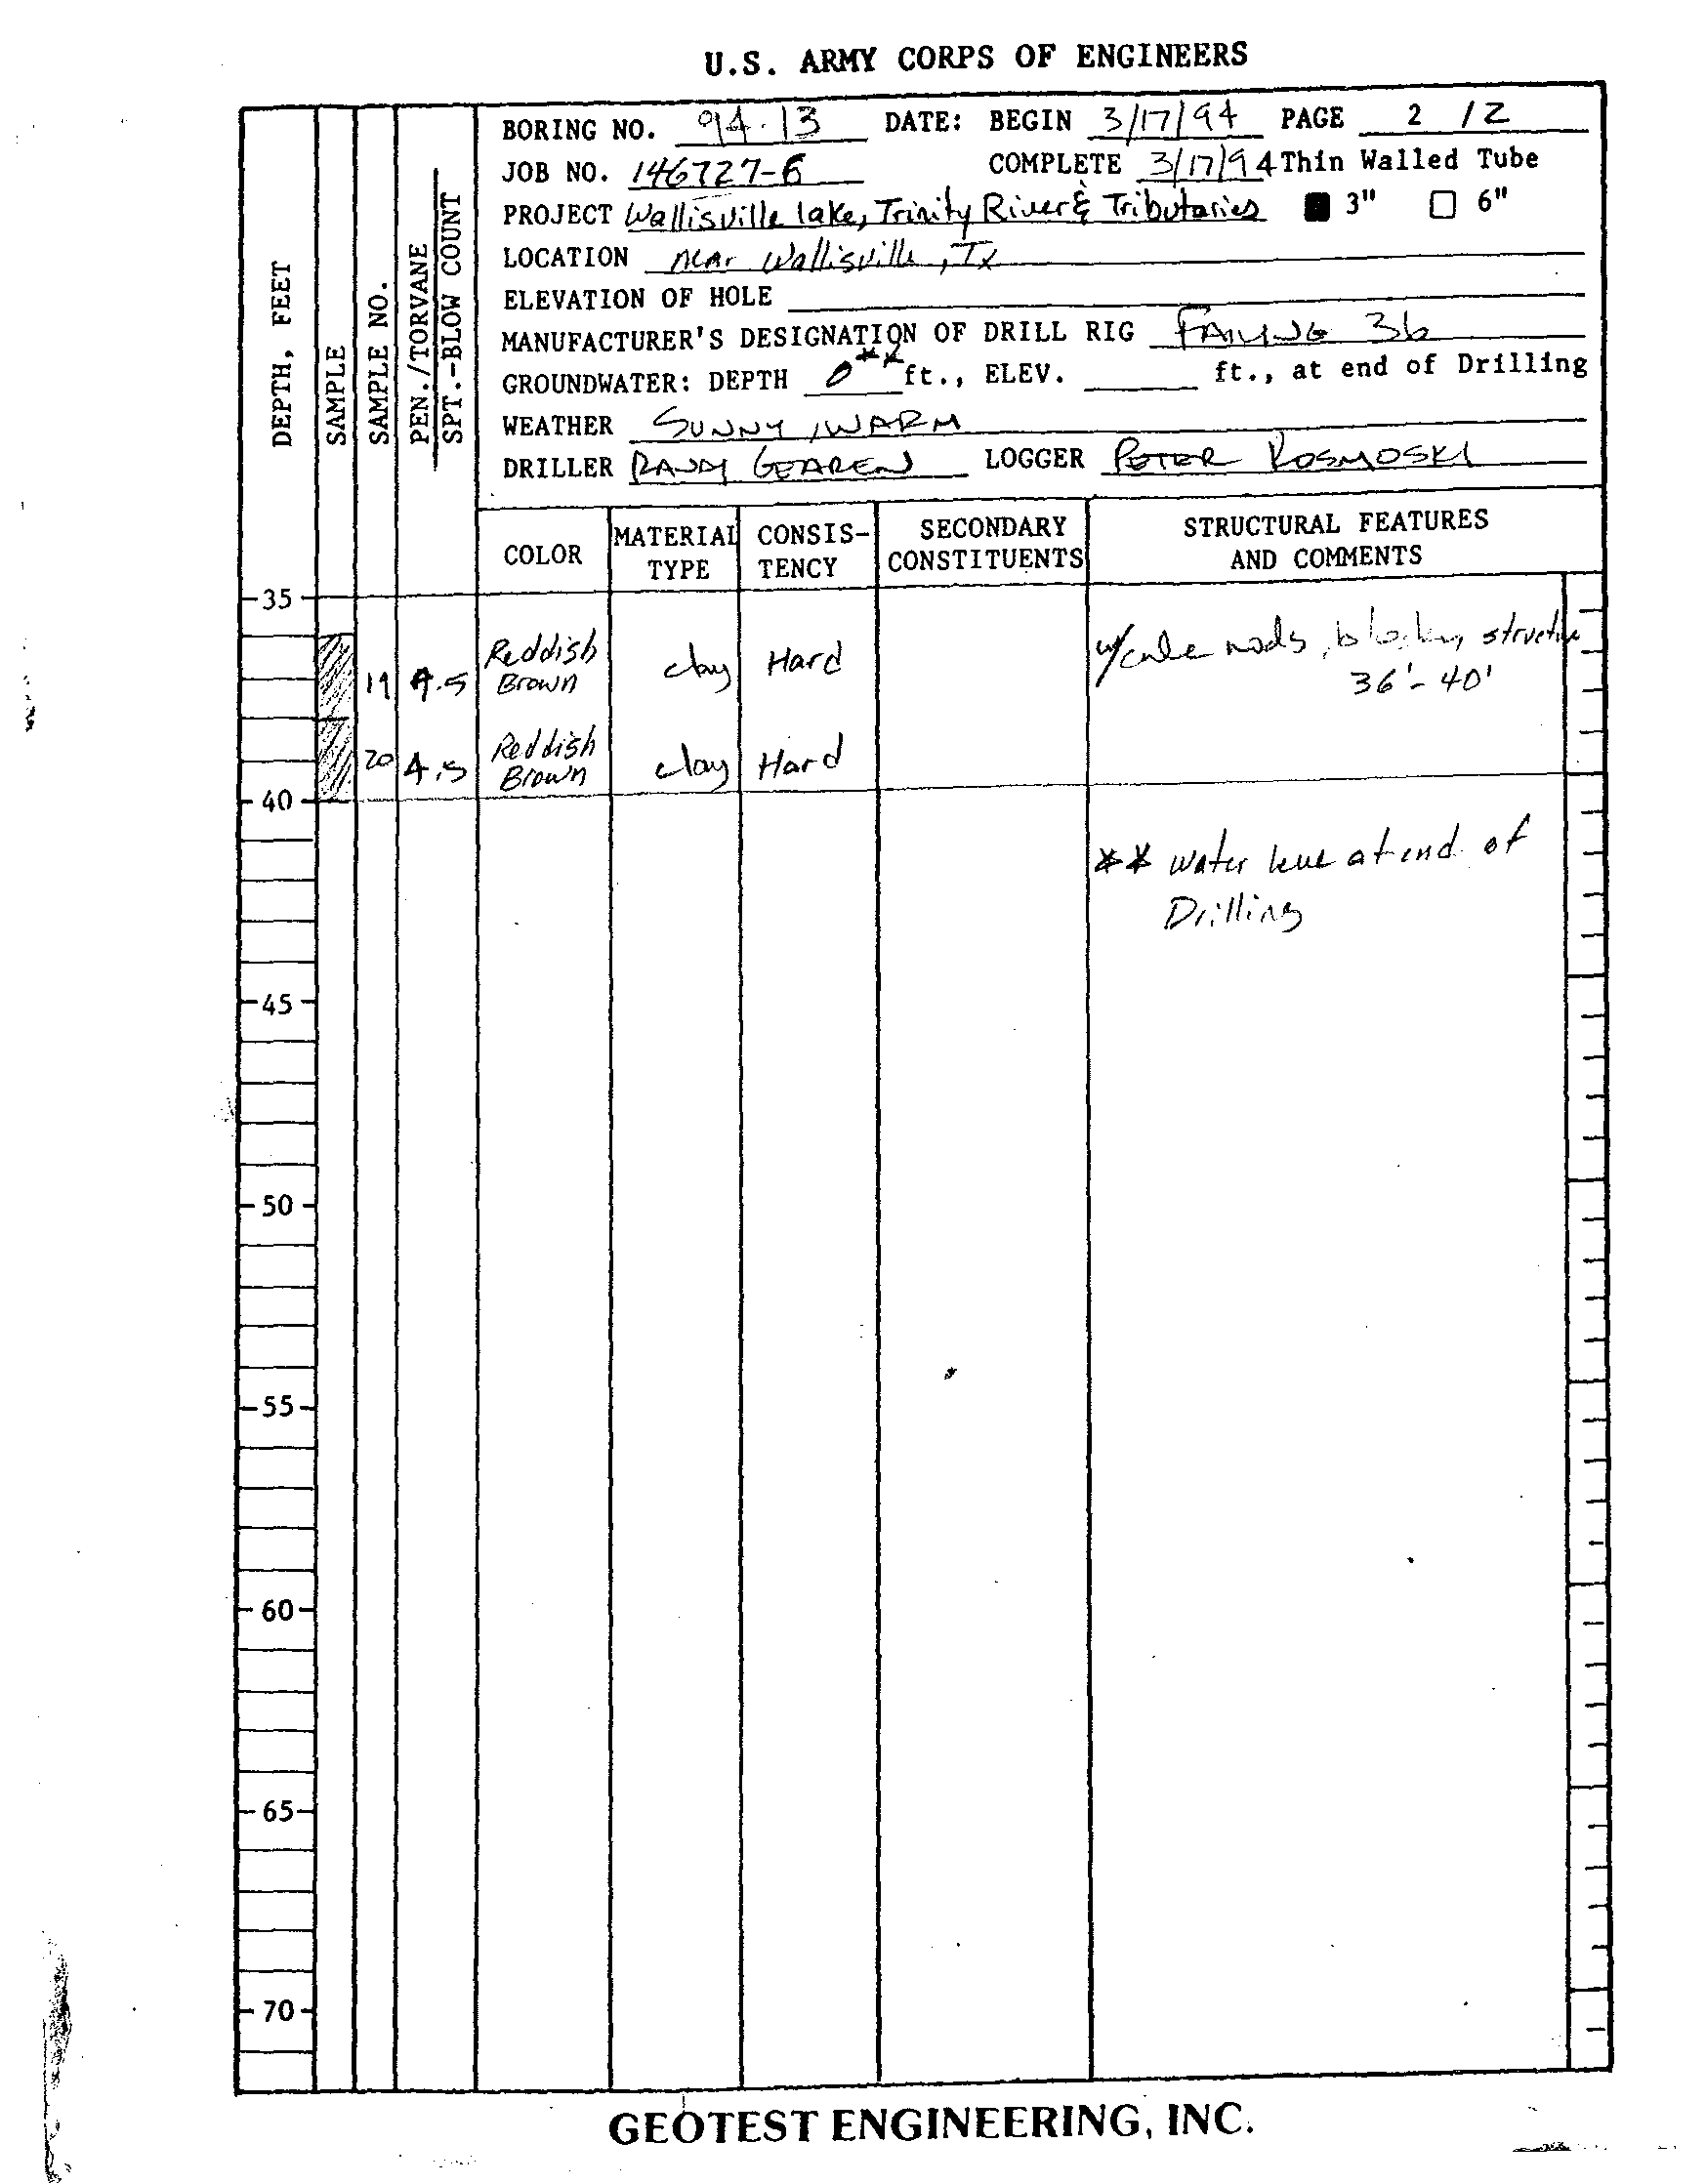 U.S. ARMY CORPS OF ENGINEERS
BORING NO. 94-13 DATE: BEGIN 3/17/94 PAGE 2 /2
JOB NO. 146727-6 COMPLETE 3/17/94 Thin Walled Tube
PROJECT Wallisville lake, Trinity River & Tributaries 3" 6"
LOCATION near Wallisville, Tx
ELEVATION OF HOLE
MANUFACTURER'S DESIGNATION OF DRILL RIG FAILING 36
GROUNDWATER: DEPTH 0** ft., ELEV. ft., at end of Drilling
WEATHER SUNNY, WARM
DRILLER RANDY GEAREN LOGGER PETER KOSMOSKI
DEPTH, FEET
SAMPLE
SAMPLE NO.
PEN./TORVANE
SPT.-BLOW COUNT
COLOR
MATERIAL
TYPE
CONSIS-
TENCY
SECONDARY
CONSTITUENTS
STRUCTURAL FEATURES
AND COMMENTS
35
19 4.5 Reddish Brown clay Hard w/calc nods, blocky structure
36'-40'
20 4.5 Reddish Brown clay Hard
40
** water at end of
Drilling
45
50
55
60
65
70
GEOTEST ENGINEERING, INC.